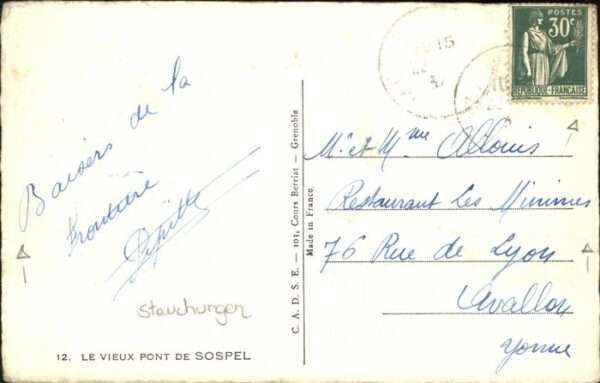 Baisers de la
frontière
stauchungen
12. LE VIEUX PONT DE SOSPEL
C. A. D. S. E. — 103, Cours Berriat — Grenoble
Made in France
POSTES
30c
REPUBLIQUE-FRANÇAISE
Mr et Mme Allouis
Restaurant Les Minimes
76 Rue de Lyon
Avallon
Yonne